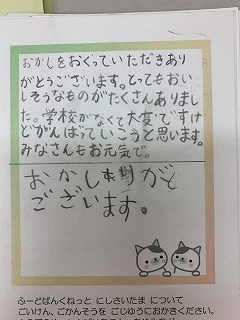 おかしをおくっていただきあり
がとうございます。とってもおい
しそうなものがたくさんありまし
た。学校がなくて大変ですけ
どがんばっていこうと思います。
みなさんもお元気で。
おかしありがと
ございます。
ふーどばんくねっと にしさいたま について
ごいけん、ごかんそうを ごじゆうにおかきください。